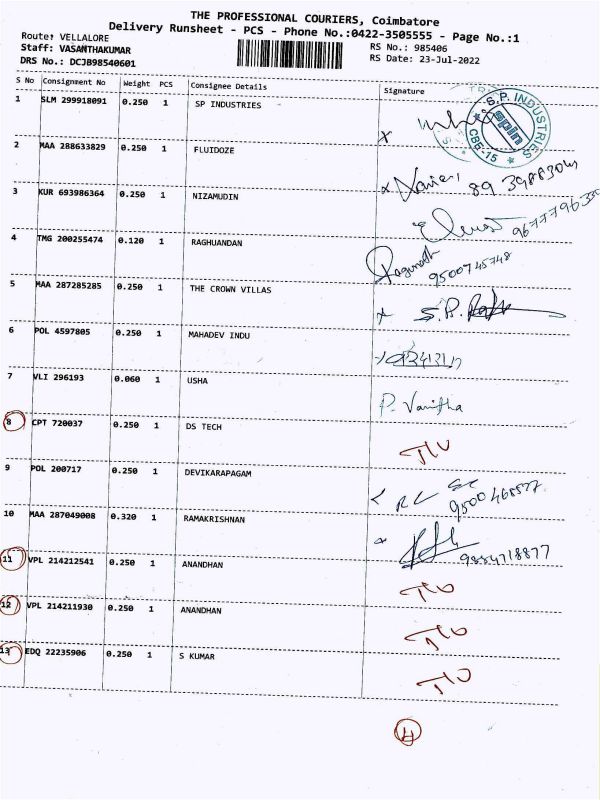 THE PROFESSIONAL COURIERS, Coimbatore
Delivery Runsheet - PCS - Phone No.:0422-3505555 - Page No.:1
Route: VELLALORE
Staff: VASANTHAKUMAR
DRS No.: DCJB98540601
RS No.: 985406
RS Date: 23-Jul-2022
S No Consignment No Weight PCS Consignee Details Signature
1 SLM 299918091 0.250 1 SP INDUSTRIES
S.P. INDUSTRIES
spin
CBE-15
2 MAA 288633829 0.250 1 FLUIDOZE
3 KUR 693986364 0.250 1 NIZAMUDIN
4 TMG 200255474 0.120 1 RAGHUANDAN
Ragunath
9500745748
5 MAA 287285285 0.250 1 THE CROWN VILLAS
S.P.
6 POL 4597805 0.250 1 MAHADEV INDU
7 VLI 296193 0.060 1 USHA
P. Vanitha
8 CPT 720037 0.250 1 DS TECH
9 POL 200717 0.250 1 DEVIKARAPAGAM
10 MAA 287049008 0.320 1 RAMAKRISHNAN
9884718877
11 VPL 214212541 0.250 1 ANANDHAN
12 VPL 214211930 0.250 1 ANANDHAN
13 EDQ 22235906 0.250 1 S KUMAR